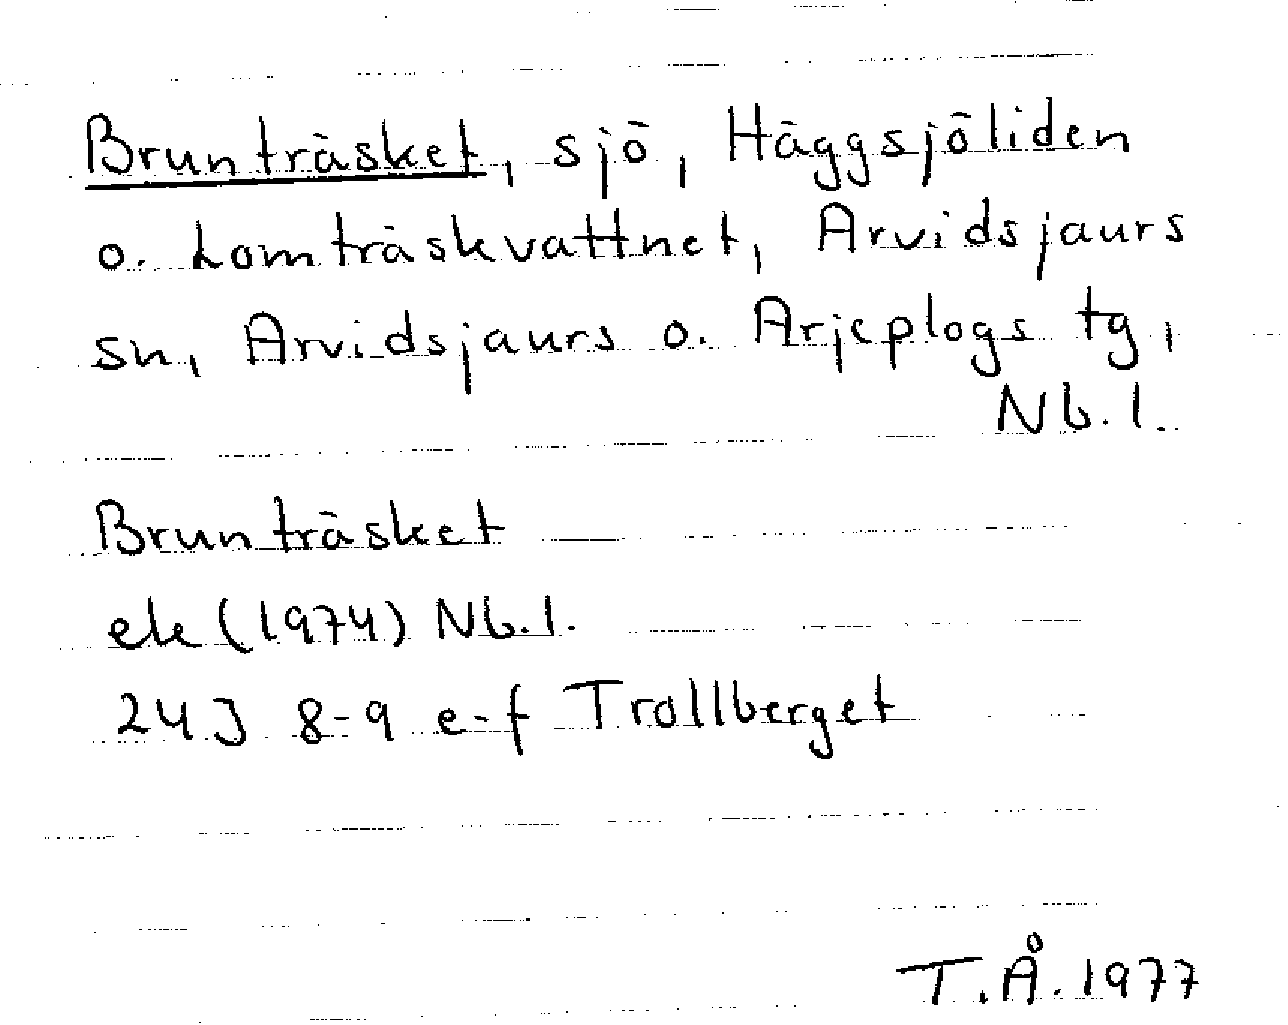 Brunträsket, sjö, Häggsjöliden
o. Lomträskvattnet, Arvidsjaurs
sn, Arvidsjaurs o. Arjeplogs tg,
Nb. l.
Brunträsket
ek (1974) Nb. l.
24J 8-9 e-f Trollberget
T.Å. 1977